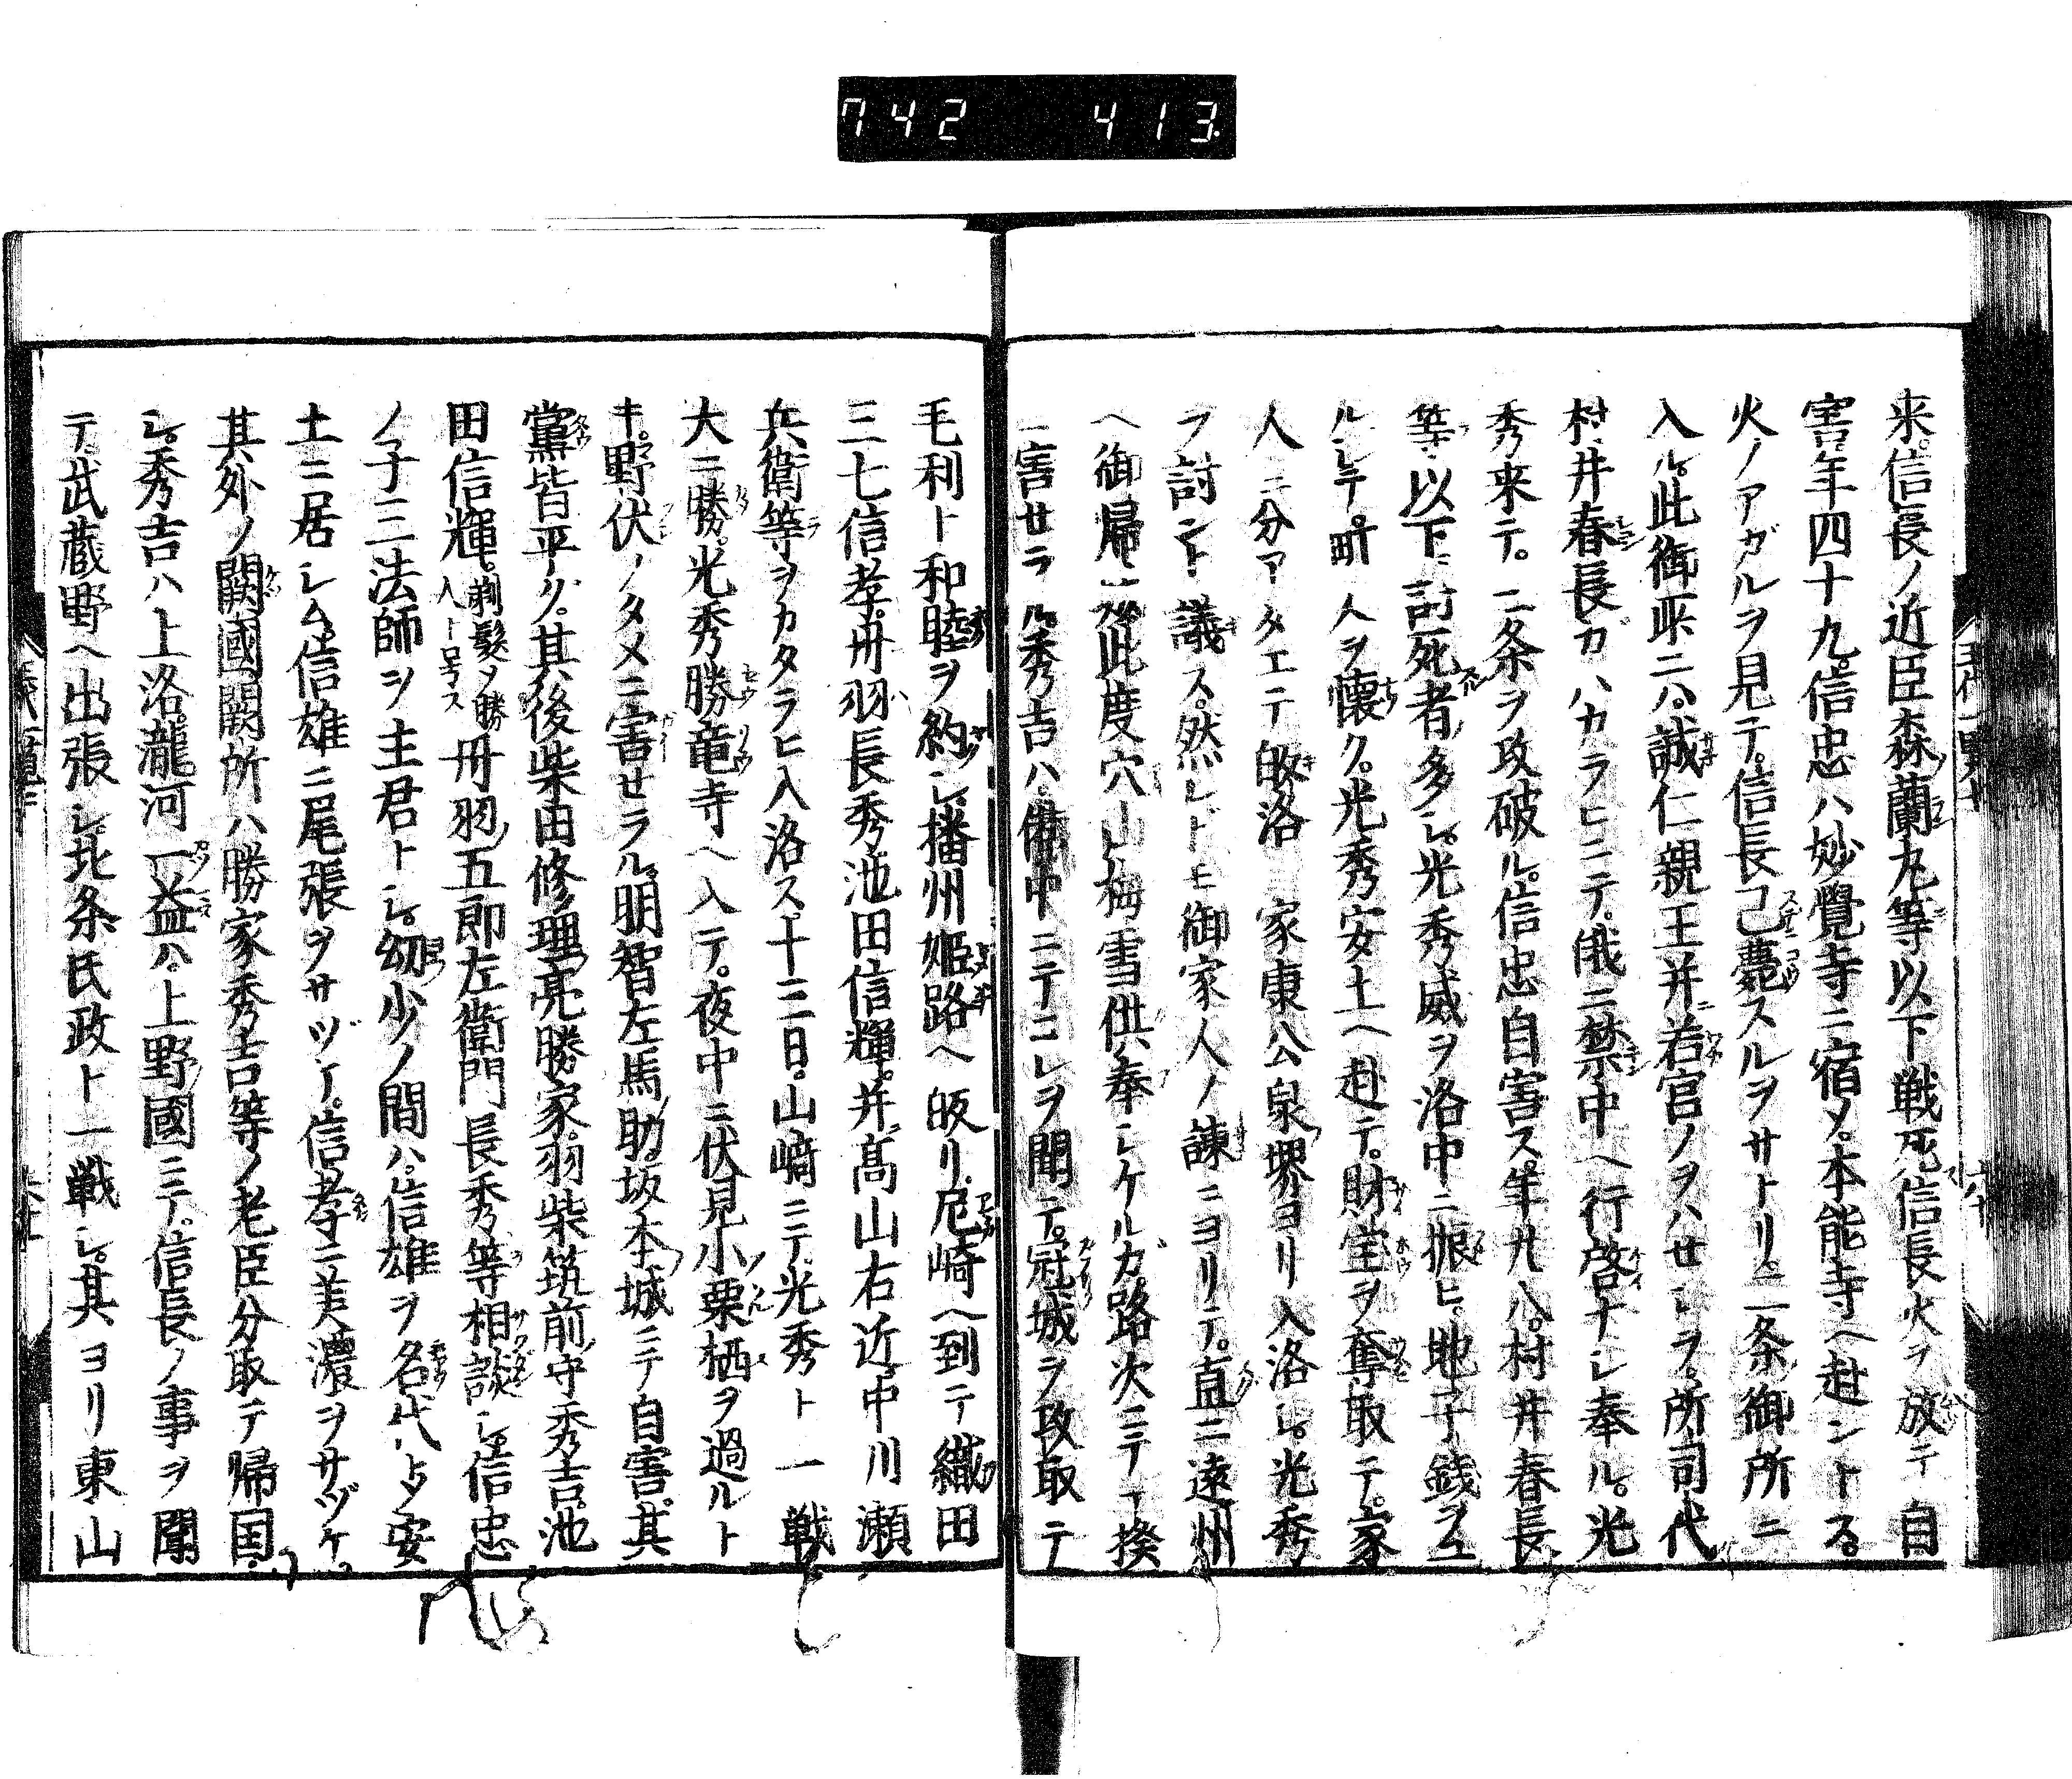 742 413.
来。信長ノ近臣森蘭丸等以下戦死信長火ヲ放テ自
害。年四十九。信忠ハ妙覺寺ニ宿メ。本能寺ヘ赴ントス。
火ノアガルヲ見テ。信長已薨スルヲサトリ。二条御所ニ
入ル。此御所ニハ。誠仁親王并若宮ノヲハセシヲ。所司代
村井春長ガハカラヒニテ。俄ニ禁中ヘ行啓ナシ奉ル。光
秀来テ。二条ヲ攻破ル。信忠自害ス。年廿八。村井春長
等以下討死者多シ。光秀威ヲ洛中ニ振ヒ。地子銭ヲユ
ルシテ。町人ヲ懐ク。光秀安土ヘ赴テ。財宝ヲ奪取テ。家
人ニ分アタエテ皈洛 家康公泉堺ヨリ入洛シ。光秀
ヲ討ント議ス。然レドモ御家人ノ諫ニヨリテ。直ニ遠州
ヘ御帰 此度穴山梅雪供奉シケルガ。路次ニテ一揆
害セラル。秀吉ハ備中ニテコレヲ聞テ。冠城ヲ攻取テ
毛利ト和睦ヲ約シ。播州姫路ヘ皈リ。尼崎ヘ到テ織田
三七信孝。丹羽長秀池田信輝。并髙山右近中川瀬
兵衛等ヲカタラヒ入洛ス。十三日。山崎ニテ光秀ト一戦
大ニ勝。光秀勝竜寺ヘ入テ。夜中ニ伏見小栗栖ヲ過ルト
キ。野伏ノタメニ害セラル。明智左馬助坂本城ニテ自害。其
黨皆平グ。其後柴田修理亮勝家羽柴筑前守秀吉池
田信輝。剃髪メ勝入ト号ス丹羽五郎左衛門長秀等相談シ。信忠
ノ子三法師ヲ主君トシ。幼少ノ間ハ。信雄ヲ名代トメ安
土ニ居シム。信雄ニ尾張ヲサヅケ。信孝ニ美濃ヲサヅケ。
其外ノ闕國闕所ハ勝家秀吉等ノ老臣分取テ帰国
シ。秀吉ハ上洛瀧河一益ハ。上野國ニテ。信長ノ事ヲ聞
テ。武蔵野ヘ出張シ。北条氏政ト一戦シ。其ヨリ東山